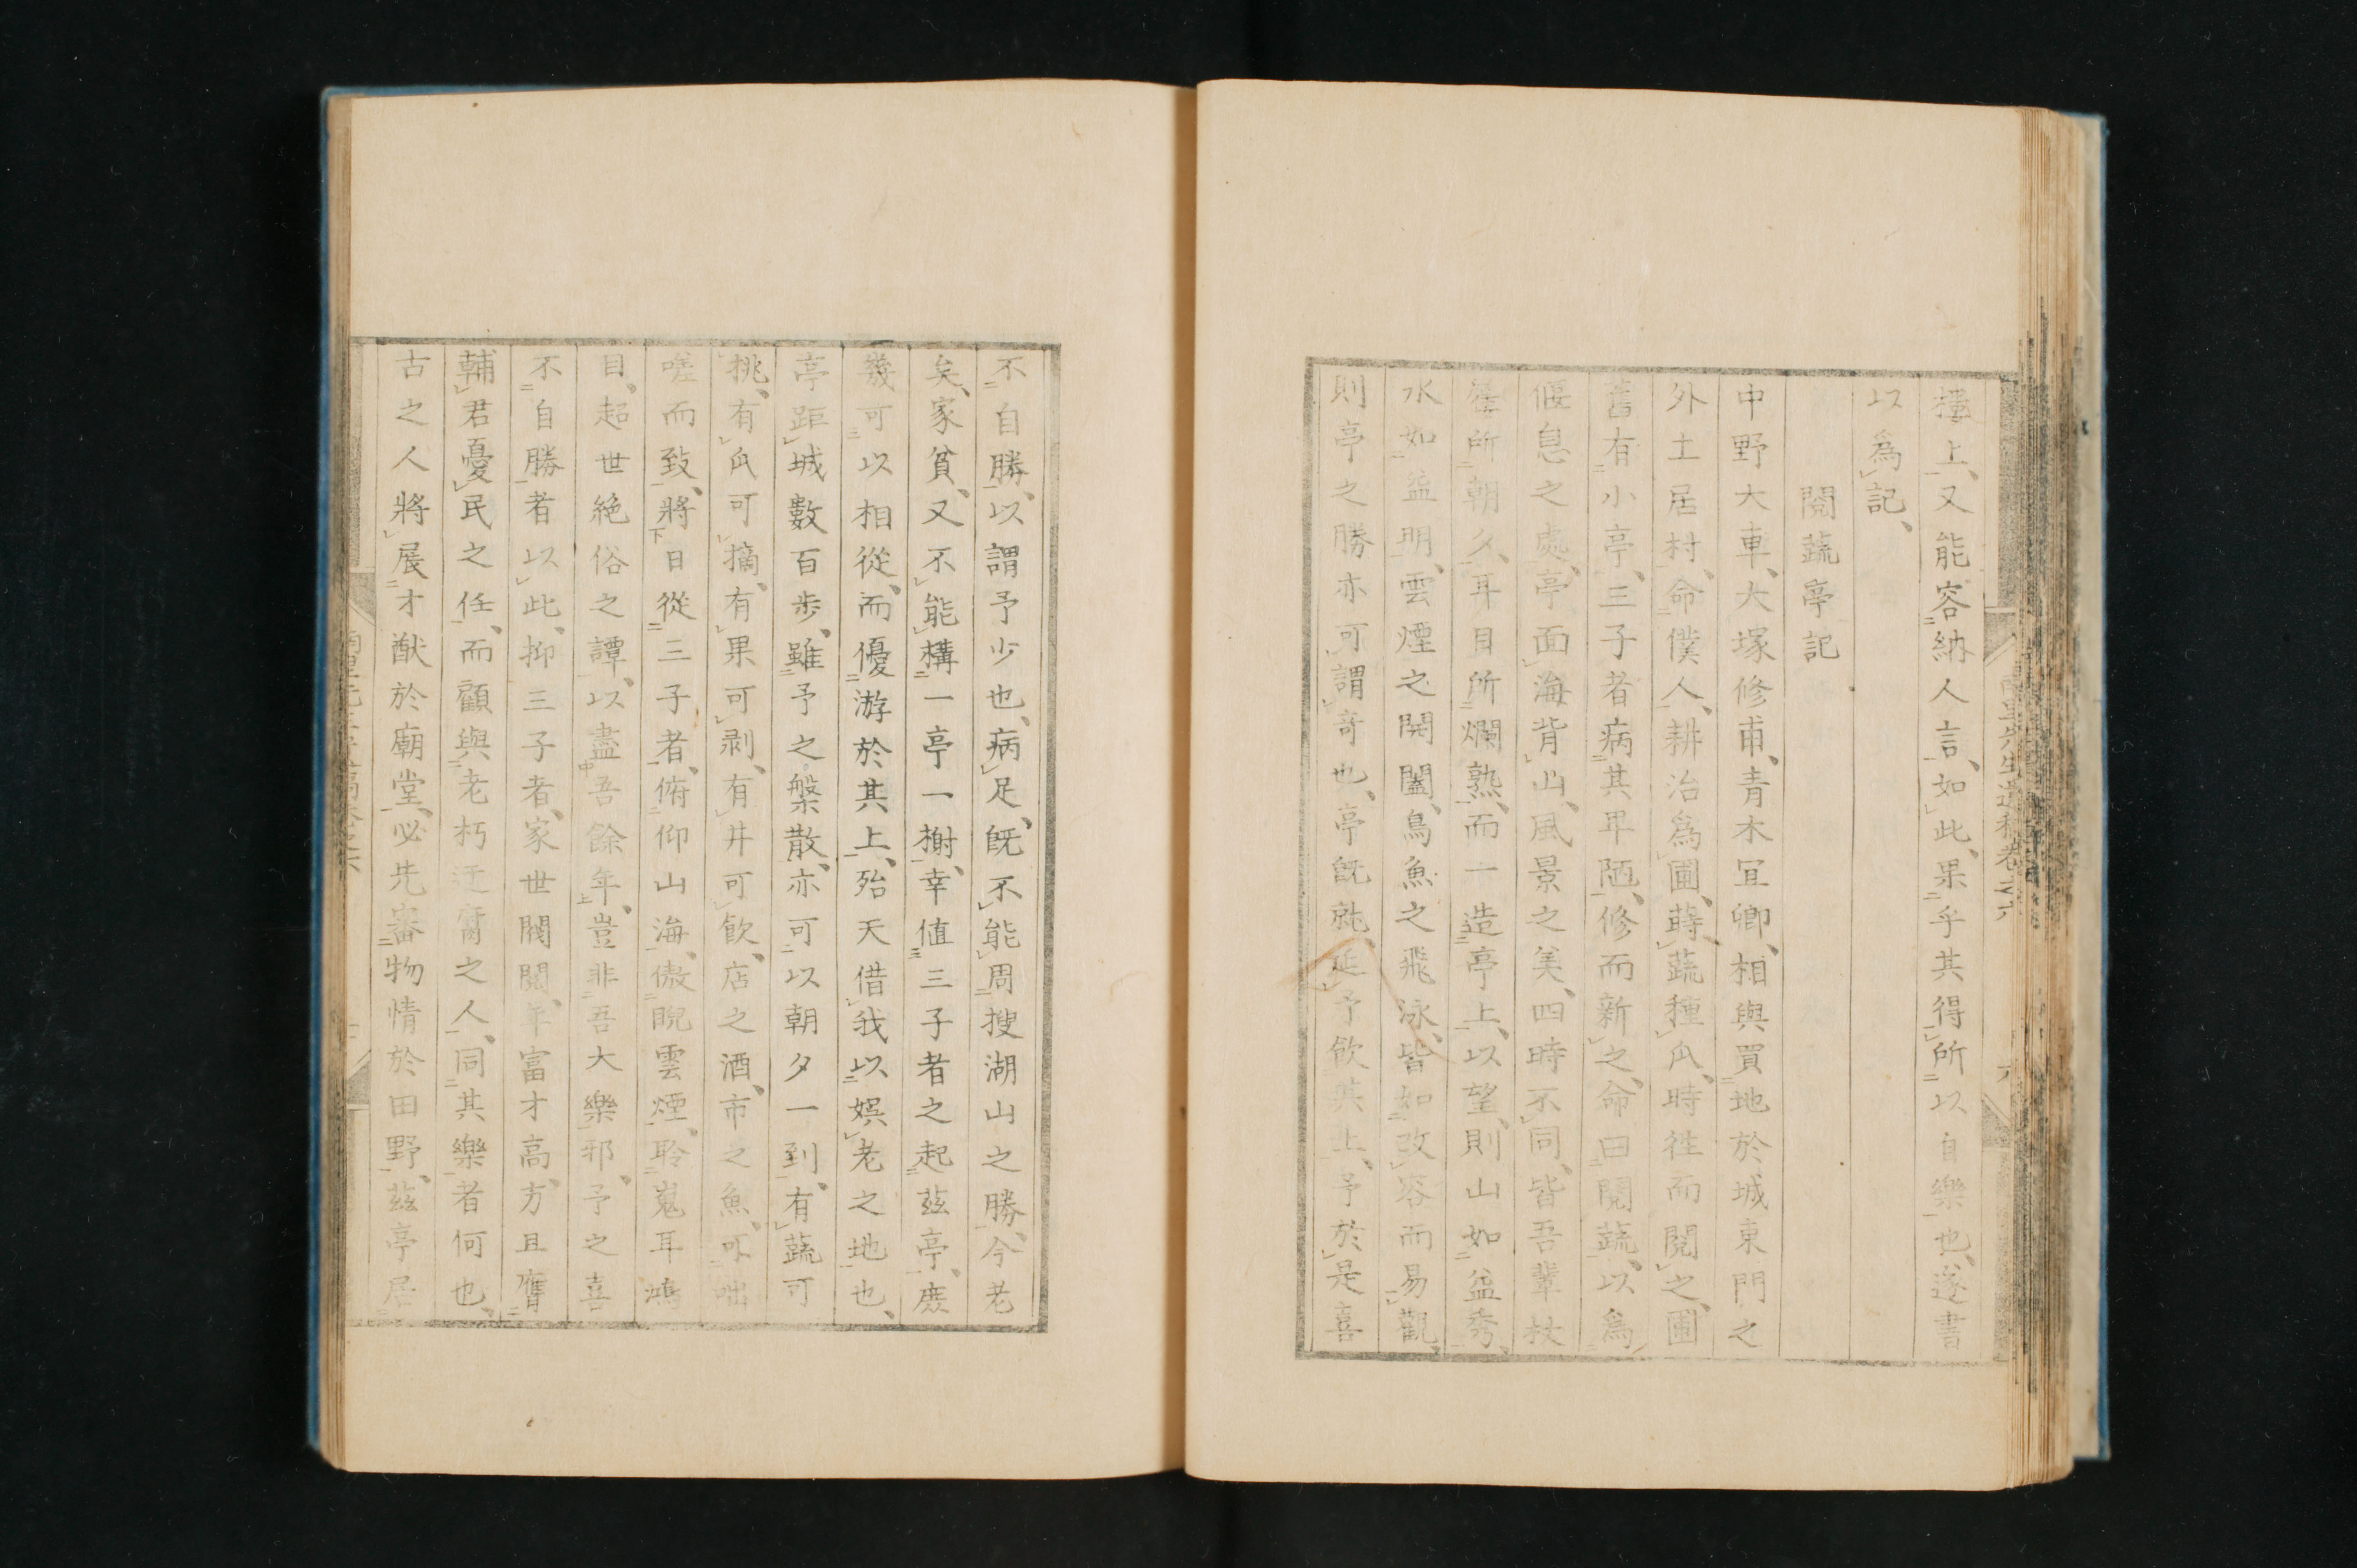 樓上、又能容納人言、如此、果乎其得所以自樂也、遂書
以爲記、
閱蔬亭記
中野大車、大塚修甫、青木宜卿、相與買地於城東門之
外土居村、命僕人、耕治爲圃、蒔蔬種瓜、時往而閱之、圃
舊有小亭、三子者病其卑陋、修而新之、命曰閱蔬、以爲
偃息之處、亭面海背山、風景之美、四時不同、皆吾輩杖
所朝夕、耳目所爛熟、而一造亭上、以望、則山如益秀、
水如益明、雲煙之開闔、鳥魚之飛泳、皆如改容而易觀、
則亭之勝亦可謂奇也、亭既就、延予飲其上、予於是喜
不自勝、以謂予少也、病足、既不能周搜湖山之勝、今老
矣、家貧、又不能構一亭一榭、幸值三子者之起茲亭、庶
幾可以相從、而優游於其上、殆天借我以娛老之地也、
亭距城數百步、雖予之槃散、亦可以朝夕一到、有蔬可
挑、有瓜可摘、有果可剥、有井可飲、店之酒、市之魚、可咄
嗟而致、將日從三子者、俯仰山海、傲睨雲煙、聆嵬耳鴻
目、超世絶俗之譚、以盡吾餘年、豈非吾大樂邪、予之喜
不自勝者以此、抑三子者、家世閥閱、年富才高、方且膺
輔君憂民之任、而顧與老朽迂腐之人、同其樂者何也、
古之人將展才猷於廟堂、必先審物情於田野、茲亭居